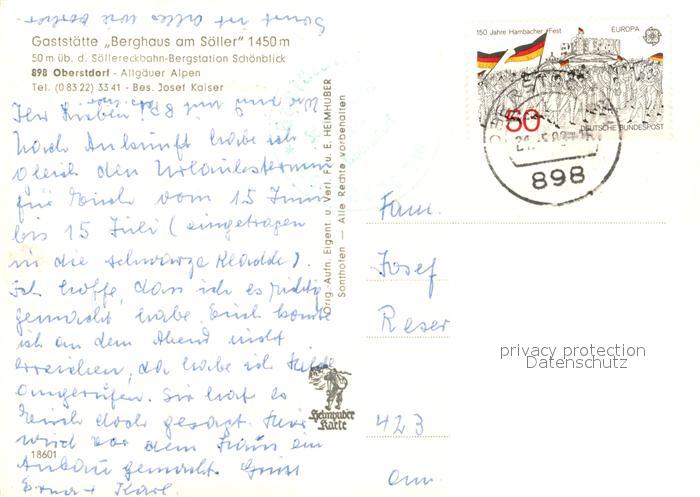 Sonst ist alles wie vorher.
Gaststätte „Berghaus am Söller" 1450 m
50 m üb. d. Söllereckbahn-Bergstation Schönblick
898 Oberstdorf - Allgäuer Alpen
Tel. (0 83 22) 33 41 - Bes. Josef Kaiser
Ihr Lieben!
Nach Ankunft habe ich
gleich den Urlaubstermin
für Euch vom 15 Juni
bis 15 Juli (eingetragen
in die schwarze Kladde).
Ich hoffe, dass ich es richtig
gemacht habe. Euch konnte
ich an dem Abend nicht
erreichen, da habe ich
angerufen. Sie hat es
Euch doch gesagt. Hier
wird vor dem Haus ein
Anbau gemacht. Gruss
Erna + Karl
18601
Orig.-Aufn. Eigent. u. Verl. Fru. E. HEIMHUBER
Sonthofen — Alle Rechte vorbehalten
Heimhuber
Karte
150 Jahre Hambacher Fest
EUROPA
50
DEUTSCHE BUNDESPOST
898
Fam.
Josef
Reser
423
privacy protection
Datenschutz